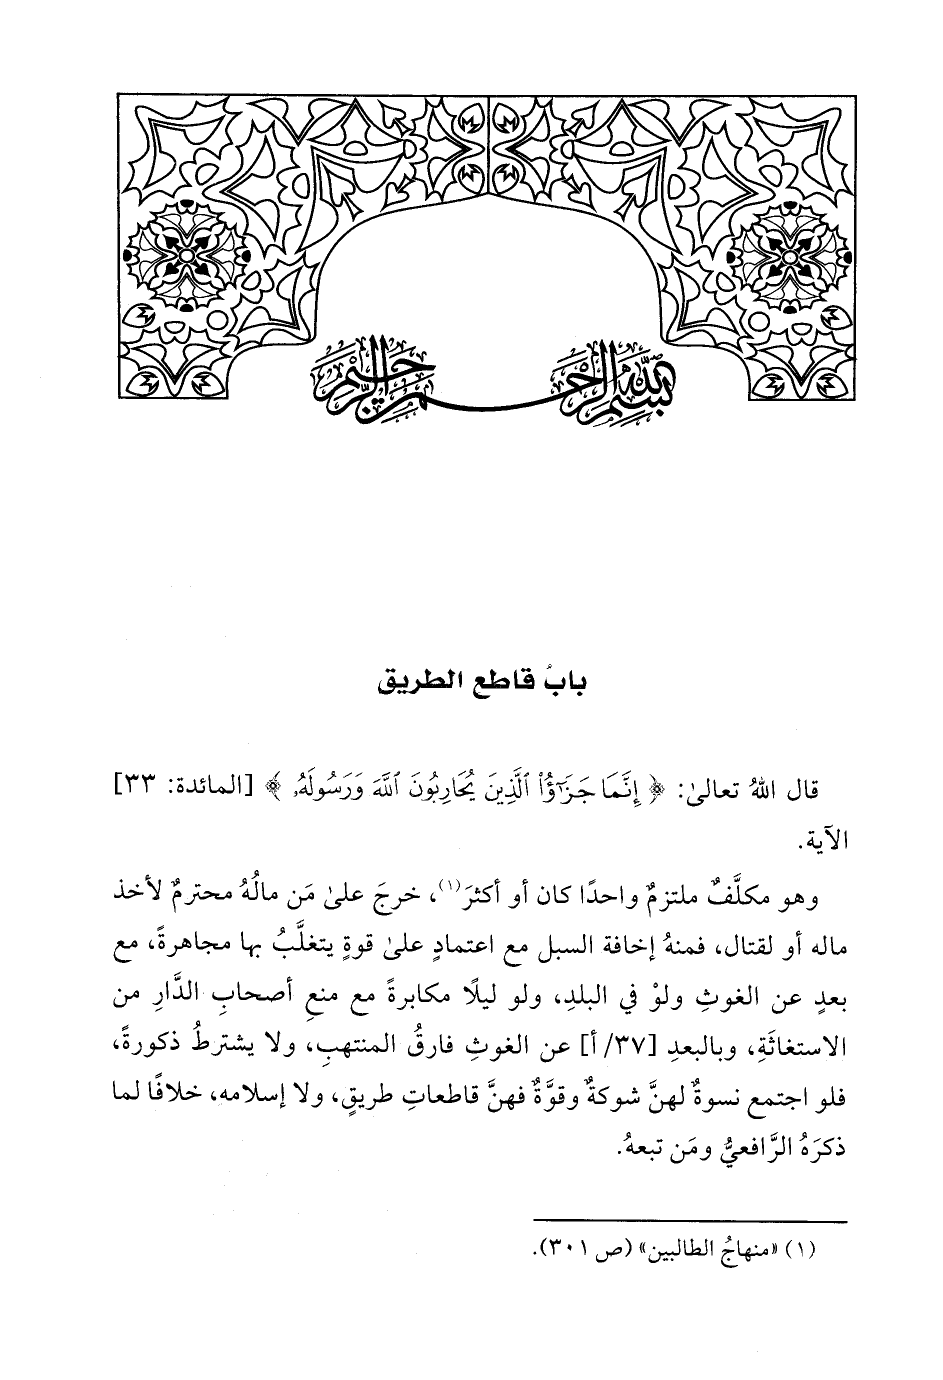 بسم الله الرحمن الرحيم
بابُ قاطع الطريق
قال اللهُ تعالىٰ: ﴿ إِنَّمَا جَزَٰٓؤُاْ ٱلَّذِينَ يُحَارِبُونَ ٱللَّهَ وَرَسُولَهُۥ ﴾ [المائدة: ٣٣]
الآية.
وهو مكلَّفٌ ملتزمٌ واحدًا كان أو أكثرَ(١)، خرجَ علىٰ مَن مالُهُ محترمٌ لأخذ
ماله أو لقتال، فمنهُ إخافة السبل مع اعتمادٍ علىٰ قوةٍ يتغلَّبُ بها مجاهرةً، مع
بعدٍ عن الغوثِ ولوْ في البلدِ، ولو ليلًا مكابرةً مع منعِ أصحابِ الدَّارِ من
الاستغاثَةِ، وبالبعدِ [٣٧/ أ] عن الغوثِ فارقُ المنتهبِ، ولا يشترطُ ذكورةً،
فلو اجتمع نسوةٌ لهنَّ شوكةٌ وقوَّةٌ فهنَّ قاطعاتِ طريقٍ، ولا إسلامه، خلافًا لما
ذكرَهُ الرَّافعيُّ ومَن تبعهُ.
(١) «منهاجُ الطالبين» (ص ٣٠١).